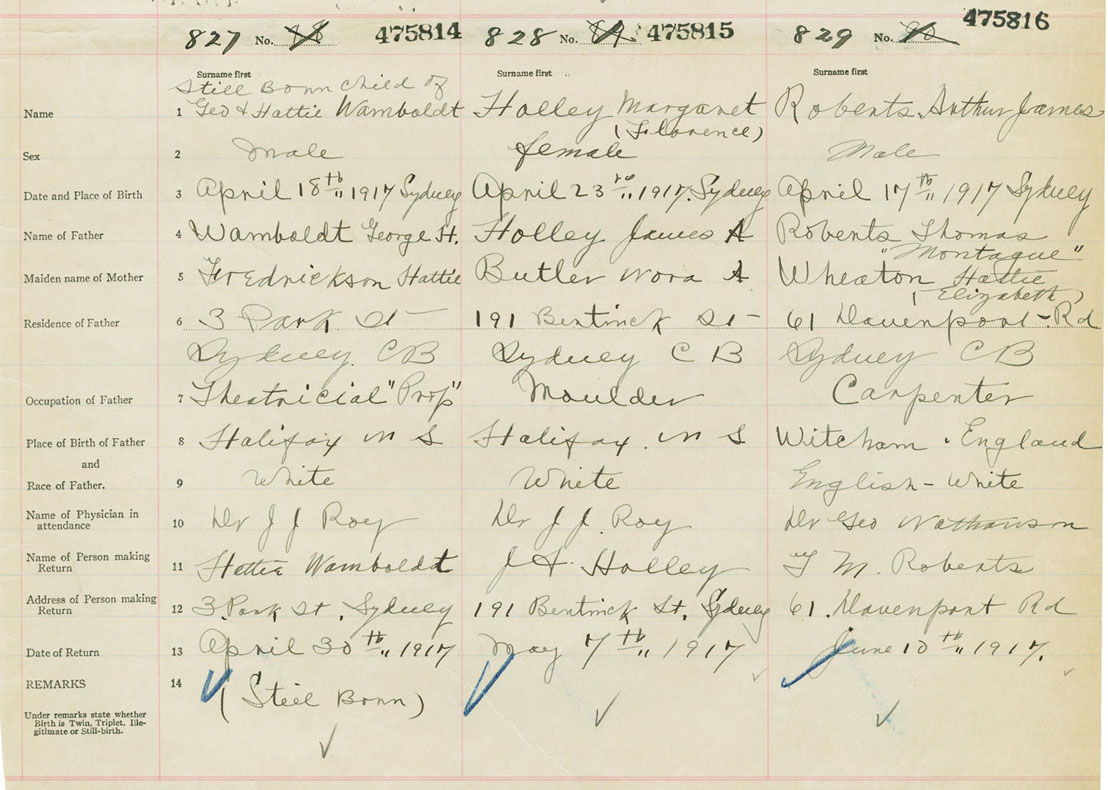 827 No. 88 475814 828 No. 89 475815 829 No. 90 475816
Surname first Surname first Surname first
Still Born Child of
Name 1 Geo & Hattie Wamboldt Holley Margaret Roberts Arthur James
(Florence)
Sex 2 Male female Male
Date and Place of Birth 3 April 18th 1917 Sydney April 23rd 1917. Sydney April 17th 1917 Sydney
Name of Father 4 Wamboldt George H. Holley James A Roberts Thomas
"Montague"
Maiden name of Mother 5 Fredrickson Hattie Butler Nora A Wheaton Hattie
(Elizabeth)
Residence of Father 6 3 Park St 191 Bentinck St 61 Davenport Rd
Sydney CB Sydney C B Sydney CB
Occupation of Father 7 Theatricial "Prop" Moulder Carpenter
Place of Birth of Father 8 Halifax N S Halifax. N S Witcham. England
and
Race of Father. 9 White White English - White
Name of Physician in
attendance 10 Dr J J Roy Dr J J. Roy Dr Geo Nathanson
Name of Person making
Return 11 Hattie Wamboldt J A. Holley T M. Roberts
Address of Person making
Return 12 3 Park St. Sydney 191 Bentinck St. Sydney 61. Davenport Rd
Date of Return 13 April 30th 1917 May 7th 1917 June 10th 1917.
REMARKS 14 (Steel Born)
Under remarks state whether
Birth is Twin, Triplet, Ille-
gitimate or Still-birth.